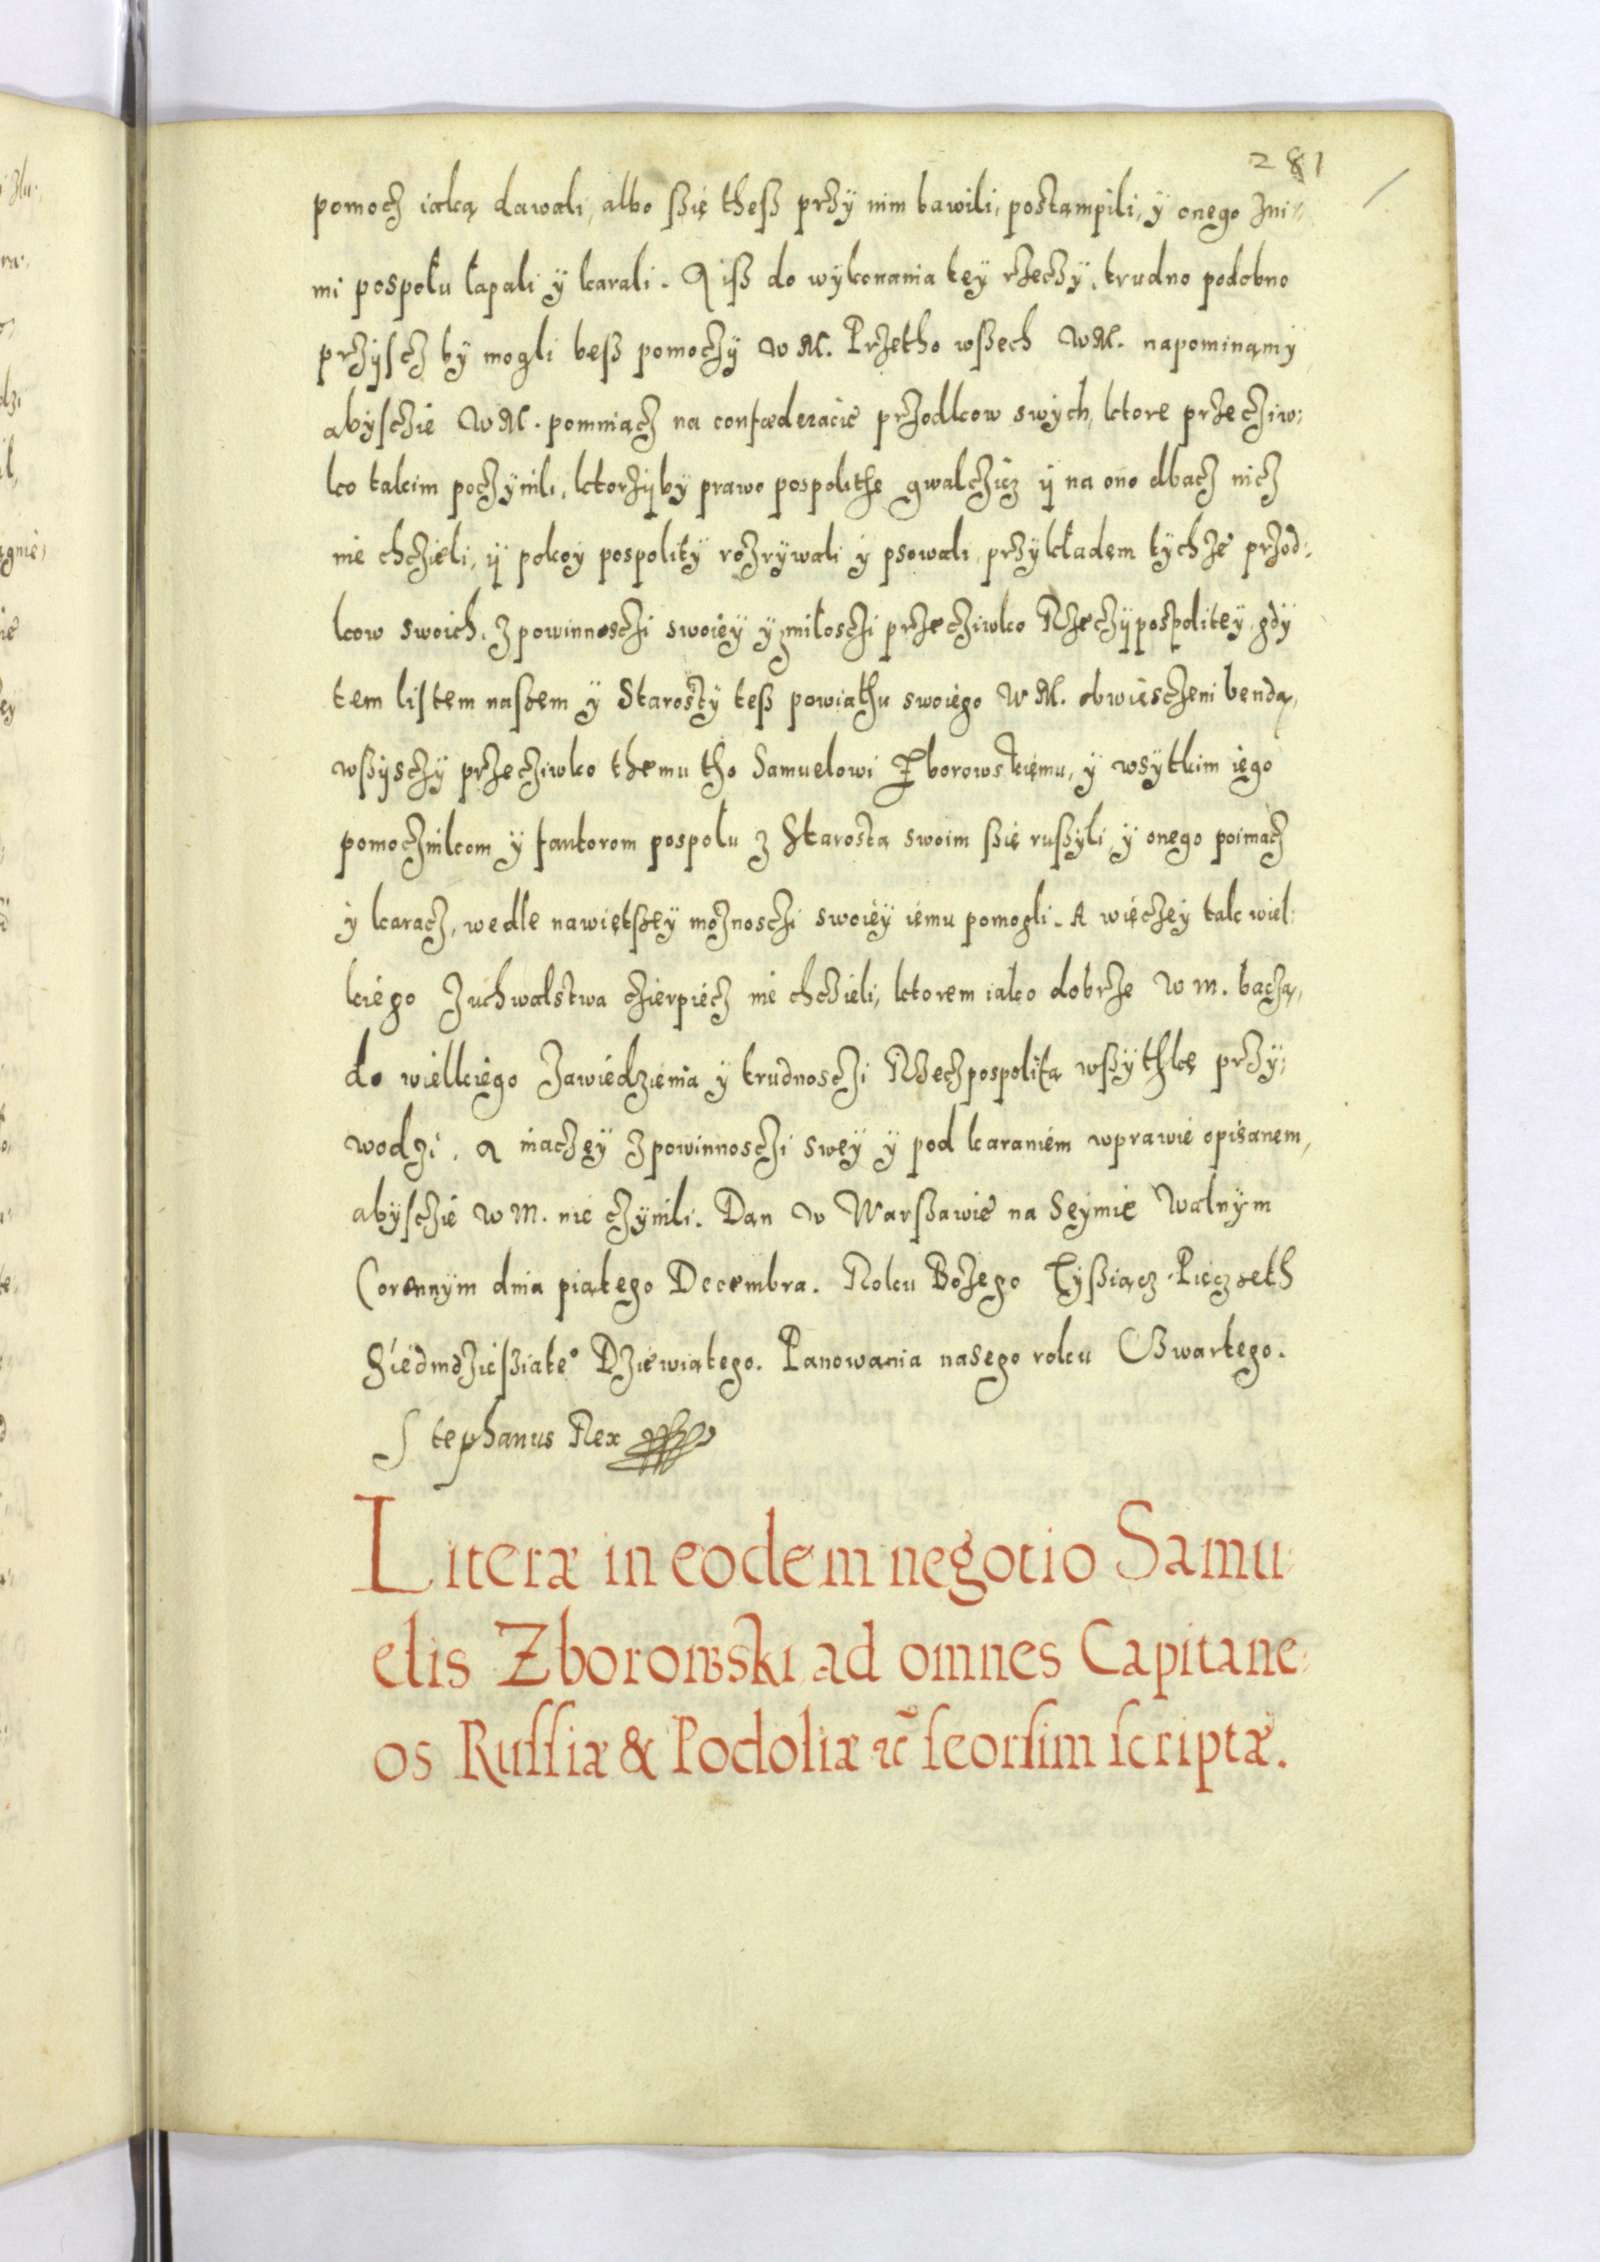 281
pomocz iaką dawali, albo ßię theß przy nim bawili, postąmpili, y onego zni⸗
mi pospołu łapali y karali. A iß do wykonania tey rzeczy, trudno podobno
przyscz by mogli beß pomoczy W M. Przetho wßech W M. napominamy
abysczie W M. pomniącz na confœderacię przodkow swych, ktore przecziw⸗
ko takim poczynili, ktorzyby prawo pospolithe gwalczicz y na ono dbacz nicz
nie chczieli, y pokoy pospolity rozrywali y psowali, przykładem tychże przod⸗
kow swoich, z powinnosczi swoiey y miłosczi przecziwko Rzeczypospolitey, gdy
tem listem naszem y Starosty teß powiathu swoiego W M. obwiesczeni bendą,
wßysczy przecziwko themu tho Samuelowi Zborowskiemu, y wsytkim iego
pomocznikom y fautorom pospołu z Starostą swoim ßię rußyli y onego poimacz
y karacz, wedle nawiętszey możnosczi swoiey iemu pomogli. A więczey tak wiel⸗
kiego zuchwalstwa czierpiecz nie chczieli, ktorem iako dobrze W M. baczą,
do wielkiego zawiedzienia y trudnosczi Rzeczpospolitą wßythkę przy⸗
wodzi. A inaczey z powinnosczi swey y pod karaniem wprawie opisanem,
abysczie W M. nie czynili. Dan w Warßawie na Seymie Walnym
Coronnym dnia piątego Decembra. Roku Bożego Tyßiącz Pięczseth
Siedmdzießiąteº Dziewiątego. Panowania nasego roku Czwartego.
Stephanus Rex
Literæ in eodem negotio Samu⸗
elis Zborowski ad omnes Capitane⸗
os Russiæ & Podoliæ &c̃ seorsim scriptæ.